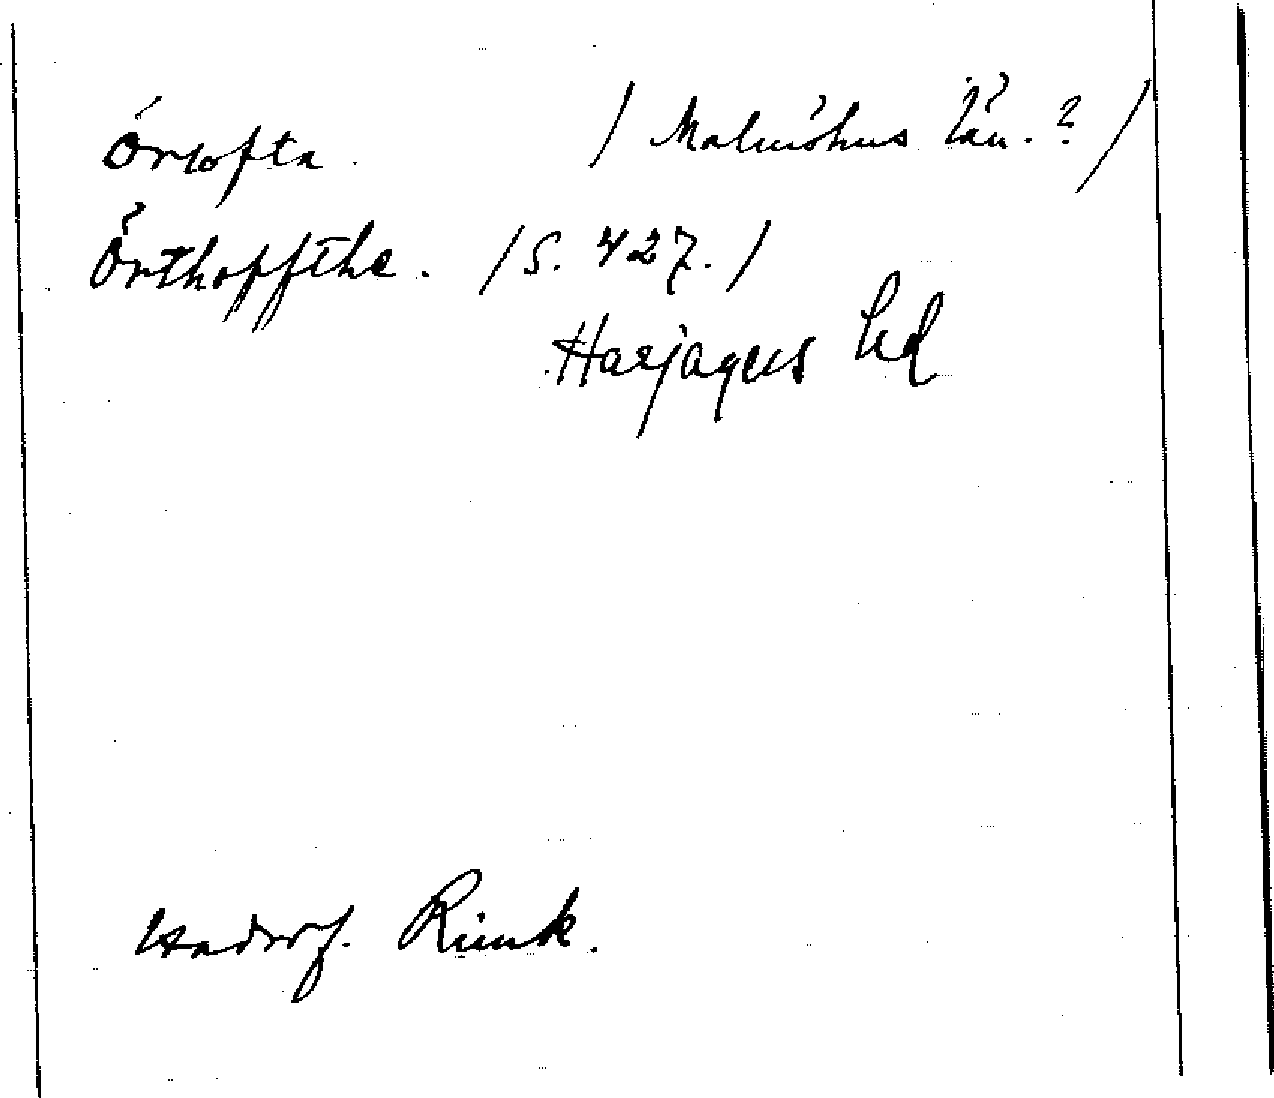 Örtofta. / Malmöhus län. ? /
Örthopffthe. / S. 427. /
Harjagers hd
Hadorf. Rimk.